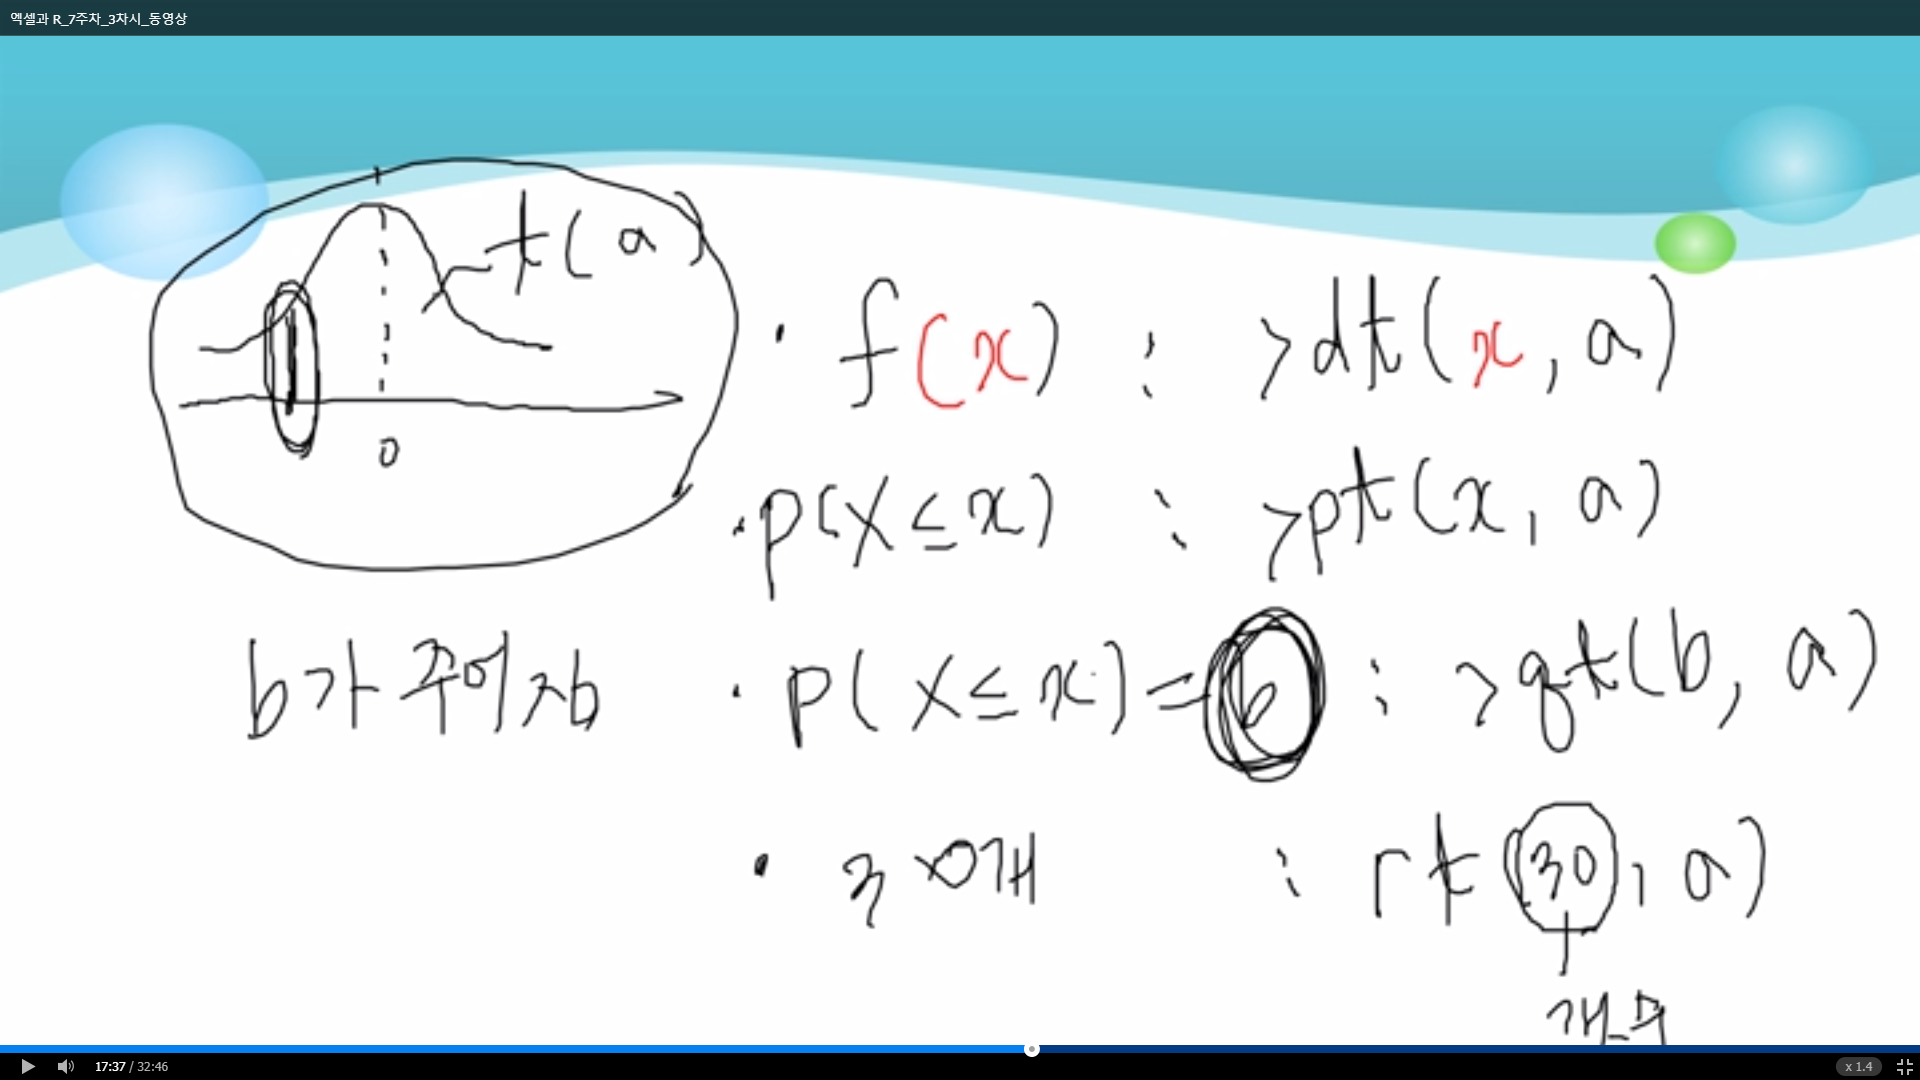 엑셀과 R_7주차_3차시_동영상
t(a)
0
· f(x) : >dt(x, a)
· p(X≤x) : >pt(x, a)
b가 주어짐
· p(X≤x)=b : >qt(b, a)
· 30개 : rt(30, a)
개수
17:37 / 32:46
x 1.4